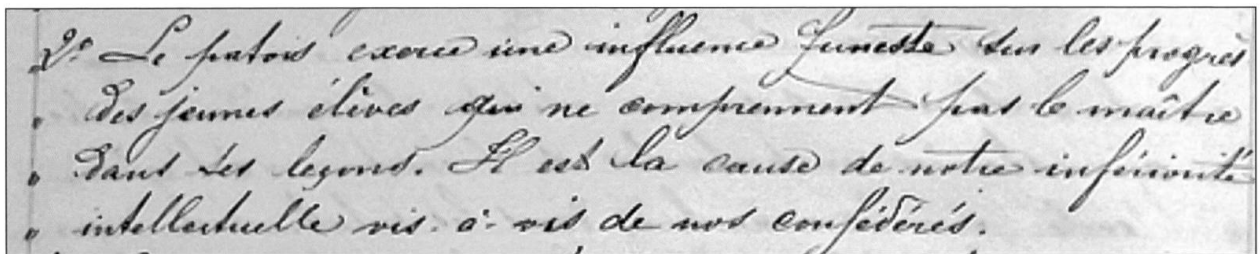 2º Le patois exerce une influence funeste sur les progrès
" des jeunes élèves qui ne comprennent pas le maître
" dans ses leçons. Il est la cause de notre infériorité
" intellectuelle vis-à-vis de nos confédérés.